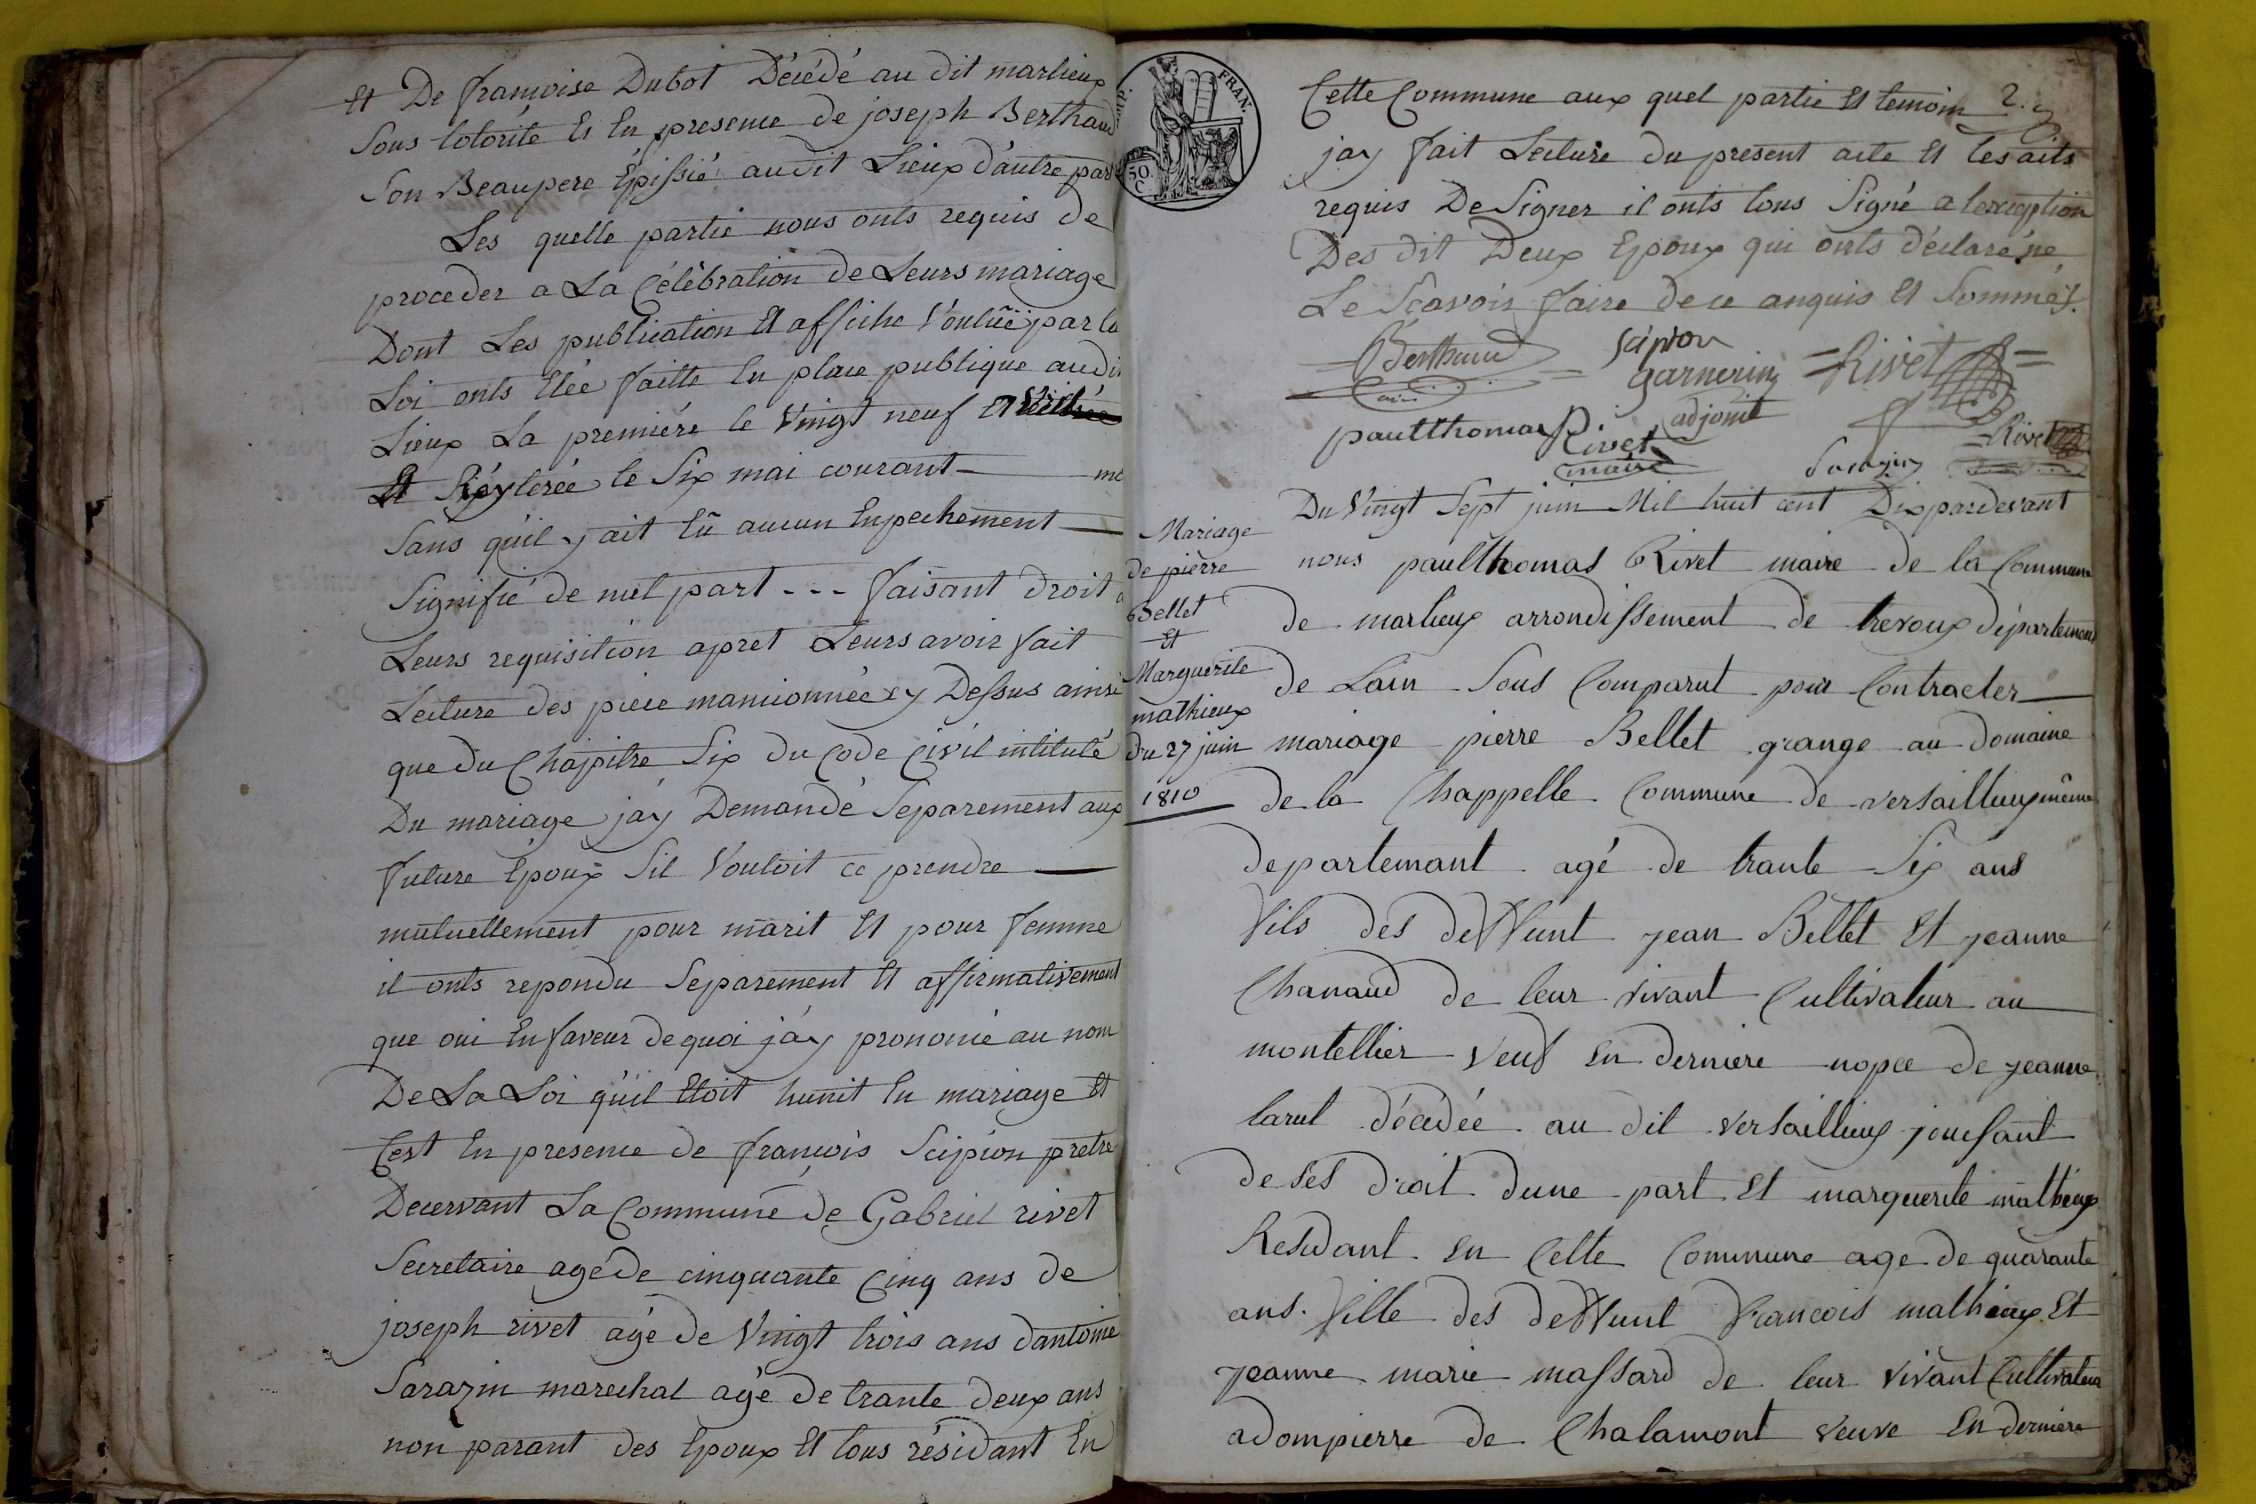 Et De françoise Dubot Décédé au dit marlieux
Sous lotorité Et En presence de joseph Berthaud
Son Beaupere Épissié audit Lieux d'autre part
Les quelle partie nous onts requis de
proceder a La Célébration de Leurs mariage
Dont Les publication Et affiche Vouluë par la
Loi onts Etée faitte En place publique audit
Lieux La premiére le Vingt neuf
Et Réyterée le Six mai courant
Sans qu'il y ait Eû aucun Enpechement
Signifié de nul part - - - faisant droit a
Leurs requisition apret Leurs avoir fait
Lecture des piece mansionnée cy Dessus ainsi
que du Chapitre Six du Code Civil intitulé
Du mariage j'ay Demandé Séparement aux
future Epoux Sil Vouloit ce prendre
mutuellement pour marit Et pour femme
il onts repondu Separement Et affirmativement
que oui En faveur de quoi j'ay prononcé au nom
De La Loi qu'il Etoit hunit En mariage Et
C'est En presence de francois Scipion pretre
Decervant La Commune de Gabriel rivet
Secretaire agé de cinquante Cinq ans de
joseph rivet agé de Vingt trois ans dantoine
Sarazin marechal agé de trante deux ans
non parant des Epoux Et tous résidant En
FRAN.
50.
C
Cette Commune aux quel partie Et temoin 2.
jay fait Lecture du present acte Et les aits
requis De Signer il onts tous Signé a lexception
Des dit Deux Epoux qui onts déclaré ne
Le Sçavoir faire de ce anquis Et Sommé.
Berthaud Scipion
garnerin Rivet
adjoint
paulthomas Rivet Rivet
maire Sarazin
Mariage
de pièrre
Bellet
Et
Marguerite
mathieux
du 27 juin
1810
Du Vingt Sept juin Mil huit cent Dix pardevant
nous paulthomas Rivet maire de la Commune
de marlieux arrondissement de trevoux département
de Lain Sous Comparut pour Contracter
mariage pierre Bellet grange au Domaine
de la Chappelle Commune de versaillieux même
departemant agé de trante Six ans
fils des deffunt jean Bellet Et jeanne
Chanaud de leur vivant Cultivateur au
montellier veuf En derniere nopce de jeanne
larut décédée au dit versaillieux jouissant
de ses droit dune part Et marguerite mathieux
Residant En Cette Commune age de quarante
ans. fille des deffunt francois mathieux Et
jeanne marie massard de leur vivant Cultivateur
adompierre de Chalamont veuve En derniere